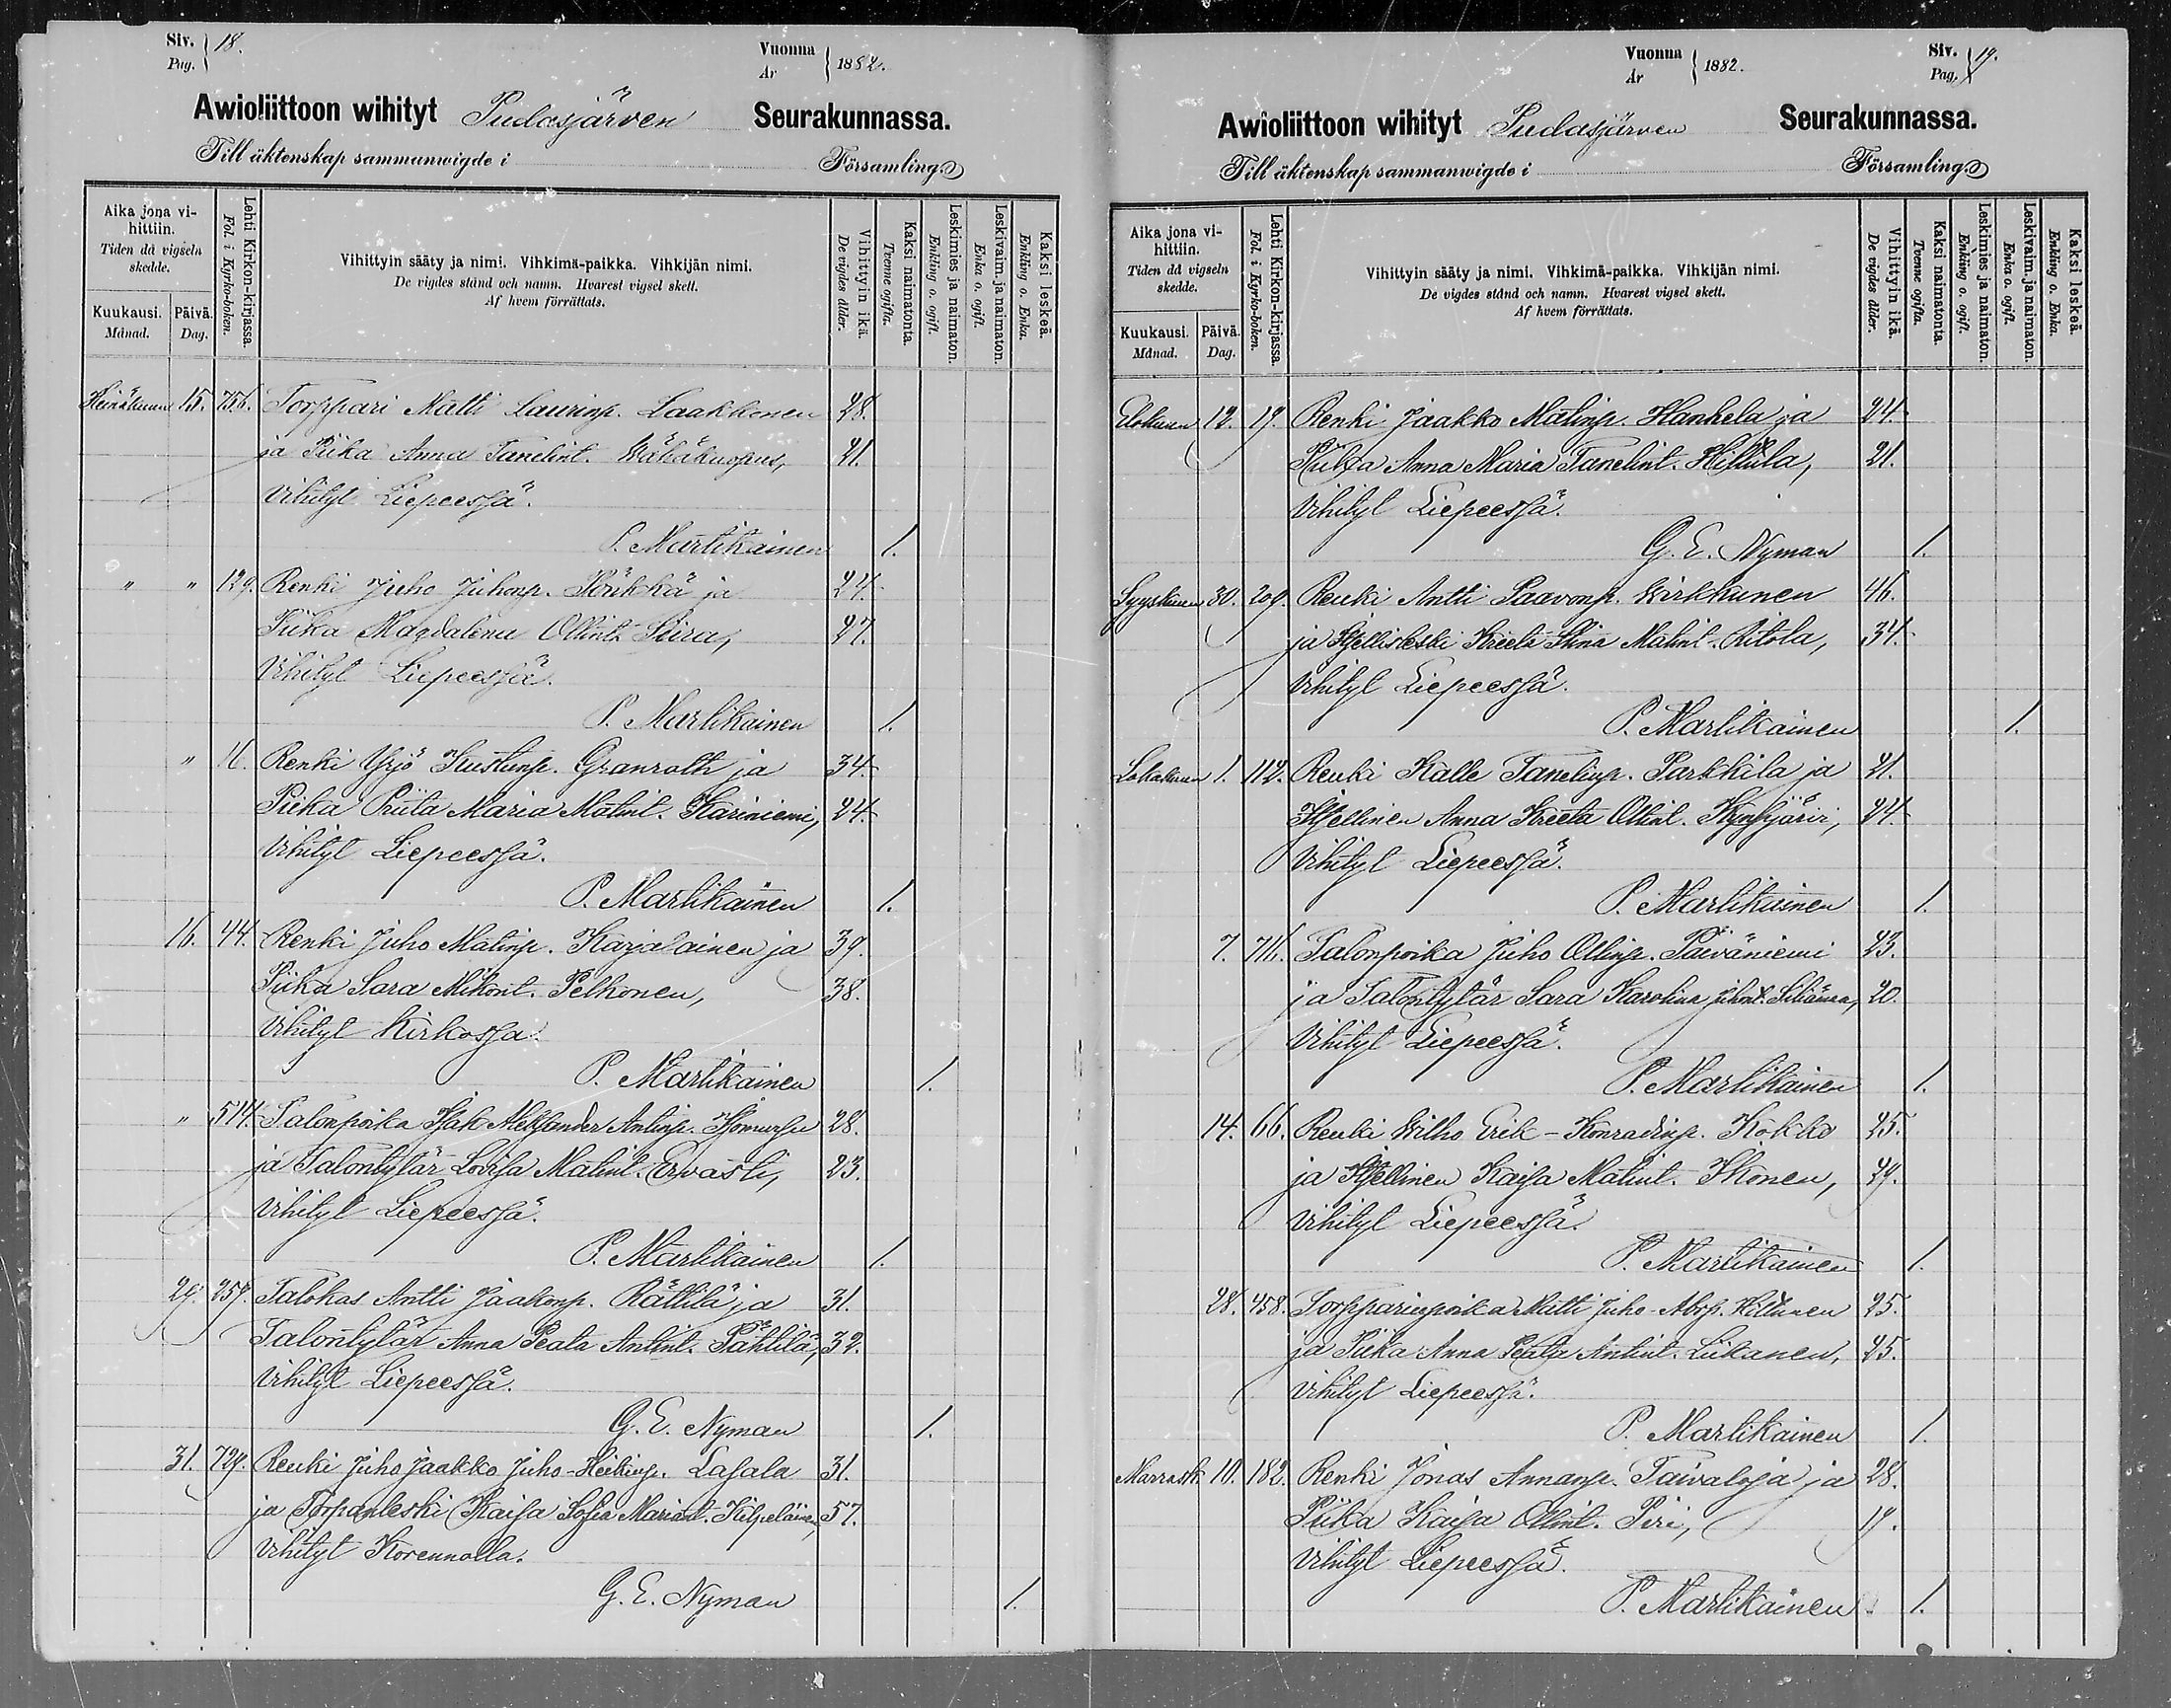 Siv. 18.
Pag.
Vuonna 1882.
År
Awioliittoon wihityt Pudasjärven Seurakunnassa.
Till äktenskap sammanwigde i Församling.
Aika jona vihittiin.
Tiden då vigseln skedde.
Kuukausi.
Månad.
Päivä.
Dag.
Lehti Kirkon-kirjassa.
Fol. i Kyrko-boken.
Vihittyin sääty ja nimi. Vihkimä-paikka. Vihkijän nimi.
De vigdes stånd och namn. Hvarest vigsel skett.
Af hvem förrättats.
Vihittyin ikä.
De vigdes ålder.
Kaksi naimatonta.
Tvenne ogifta.
Leskimies ja naimaton.
Enkling o. ogift.
Leskivaim. ja naimaton.
Enka o. ogift.
Kaksi leskeä.
Enkling o. Enka.
Heinäkuun 15. 756. Torppari Matti Laurinp. Laakkonen 28.
ja Piika Anna Tanelint. Wähäkuopus, 21.
Vihityt Liepeessä.
P. Martikainen 1.
" " 129. Renki Juho Juhonp. Hönkkä ja 24.
Piika Magdalena Ollint. Siira, 27.
Vihityt Liepeessä.
P. Martikainen 1.
" 16. Renki Yrjö Kustunp. Granroth ja 34.
Piika Priita Maria Matint. Kariniemi, 24.
Vihityt Liepeessä.
P. Martikainen 1.
16. 44. Renki Juho Matinp. Karjalainen ja 39.
Piika Sara Mikont. Pelkonen, 38.
Vihityt Kirkossa.
P. Martikainen 1.
" 514. Talonpoika Isak Aleksander Antinp. 28.
ja Talontytär Lovisa Matint. Ervasti, 23.
Vihityt Liepeessä.
P. Martikainen 1.
29. 259. Talokas Antti Jaakonp. Rättilä ja 31.
Talontytär Anna Peata Antint. Pähtilä, 32.
Vihityt Liepeessä.
G. E. Nyman 1.
31. 729. Renki Juho Jaakko Juho-Heikinp. Lasala 31.
ja Torpanleski Kaisa Sofia Kilpeläinen 57.
Vihityt Korennolla.
G. E. Nyman 1.
Vuonna 1882.
År
Siv. 19.
Pag.
Awioliittoon wihityt Pudasjärven Seurakunnassa.
Till äktenskap sammanwigde i Församling.
Aika jona vihittiin.
Tiden då vigseln skedde.
Kuukausi.
Månad.
Päivä.
Dag.
Lehti Kirkon-kirjassa.
Fol. i Kyrko-boken.
Vihittyin sääty ja nimi. Vihkimä-paikka. Vihkijän nimi.
De vigdes stånd och namn. Hvarest vigsel skett.
Af hvem förrättats.
Vihittyin ikä.
De vigdes ålder.
Kaksi naimatonta.
Tvenne ogifta.
Leskimies ja naimaton.
Enkling o. ogift.
Leskivaim. ja naimaton.
Enka o. ogift.
Kaksi leskeä.
Enkling o. Enka.
Elokuun 12. 19. Renki Jaakko Matinp. Hanhela ja 24.
Piika Anna Maria Tanelint. Hiltula, 21.
Vihityt Liepeessä.
G. E. Nyman 1.
Syyskuun 30. 209. Renki Antti Paavonp. Wirkkunen 46.
ja Itselliskeski Kreeta Stina Matint. Ritola, 34.
Vihityt Liepeessä.
P. Martikainen 1.
Lokakuun 1. 112. Renki Kalle Tanelinp. Parkkila ja 21.
Itsellinen Anna Kreeta Ollint. 24.
Vihityt Liepeessä.
P. Martikainen 1.
7. 716. Talonpoika Juho Ollinp. Päiväniemi 23.
ja Talontytär Sara Karolina Juhont. 20.
Vihityt Liepeessä.
P. Martikainen 1.
14. 66. Renki Wilho Erik-Konradinp. Kokko 25.
ja Itsellinen Kaisa Matint. Ikonen, 29.
Vihityt Liepeessä.
P. Martikainen 1.
28. 458. Torpparinpoika Matti Juho-Abrp. Hiltunen 25.
ja Piika Anna Peata Antint. Liikanen, 25.
Vihityt Liepeessä.
P. Martikainen 1.
Marrask. 10. 182. Renki Jonas Annanp. Taivaloja ja 28.
Piika Kaisa Ollint. Piri, 19.
Vihityt Liepeessä.
P. Martikainen 1.